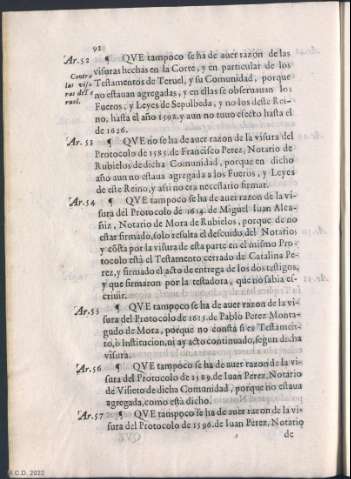 92
Ar.52 ¶ QVE tampoco se ha de auer razon de las
Contra las visuras de Teruel.
visuras hechas en la Corte, y en particular de los
Testamentos de Teruel, y su Comunidad, porque
no estauan agregadas, y en ellas se obseruauan los
Fueros, y Leyes de Sepulbeda, y no los deste Rei-
no, hasta el año 1592. y aun no tuuo efecto hasta el
de 1626.
Ar.53 ¶ QVE no se ha de auer razon de la visura del
Protocolo de 1585. de Francisco Perez, Notario de
Rubielos de dicha Comunidad, porque en dicho
año aun no estaua agregada a los Fueros, y Leyes
de este Reino, y assi no era necessario firmar.
Ar.54 ¶ QVE tampoco se ha de auer razon de la vi-
sura del Protocolo de 1614. de Miguel Iuan Alca-
ñiz, Notario de Mora de Rubielos, porque de no
estar firmado, solo resulta el descuido del Notario;
y cósta por la visura de esta parte en el mismo Pro-
tocolo està el Testamento cerrado de Catalina Pe-
rez, y firmado el acto de entrega de los dos testigos,
y que firmaron por la testadora, que no sabia es-
criuir.
Ar.55 ¶ QVE tampoco se ha de auer razon de la vi-
sura del Protocolo de 1615. de Pablo Perez Monta-
gudo de Mora, porque no consta si es Testamen-
to, ò Institucion, ni ay acto continuado, segun dicha
visura.
Ar.56 ¶ QVE tampoco se ha de auer razon de la vi-
sura del Protocolo de 1589. de Iuan Perez, Notario
de Visiedo de dicha Comunidad, porque no estaua
agregada, como està dicho.
Ar.57 ¶ QVE tampoco se ha de auer razon de la vi-
sura del Protocolo de 1596. de Iuan Perez, Notario
de
A.C.D. 2022